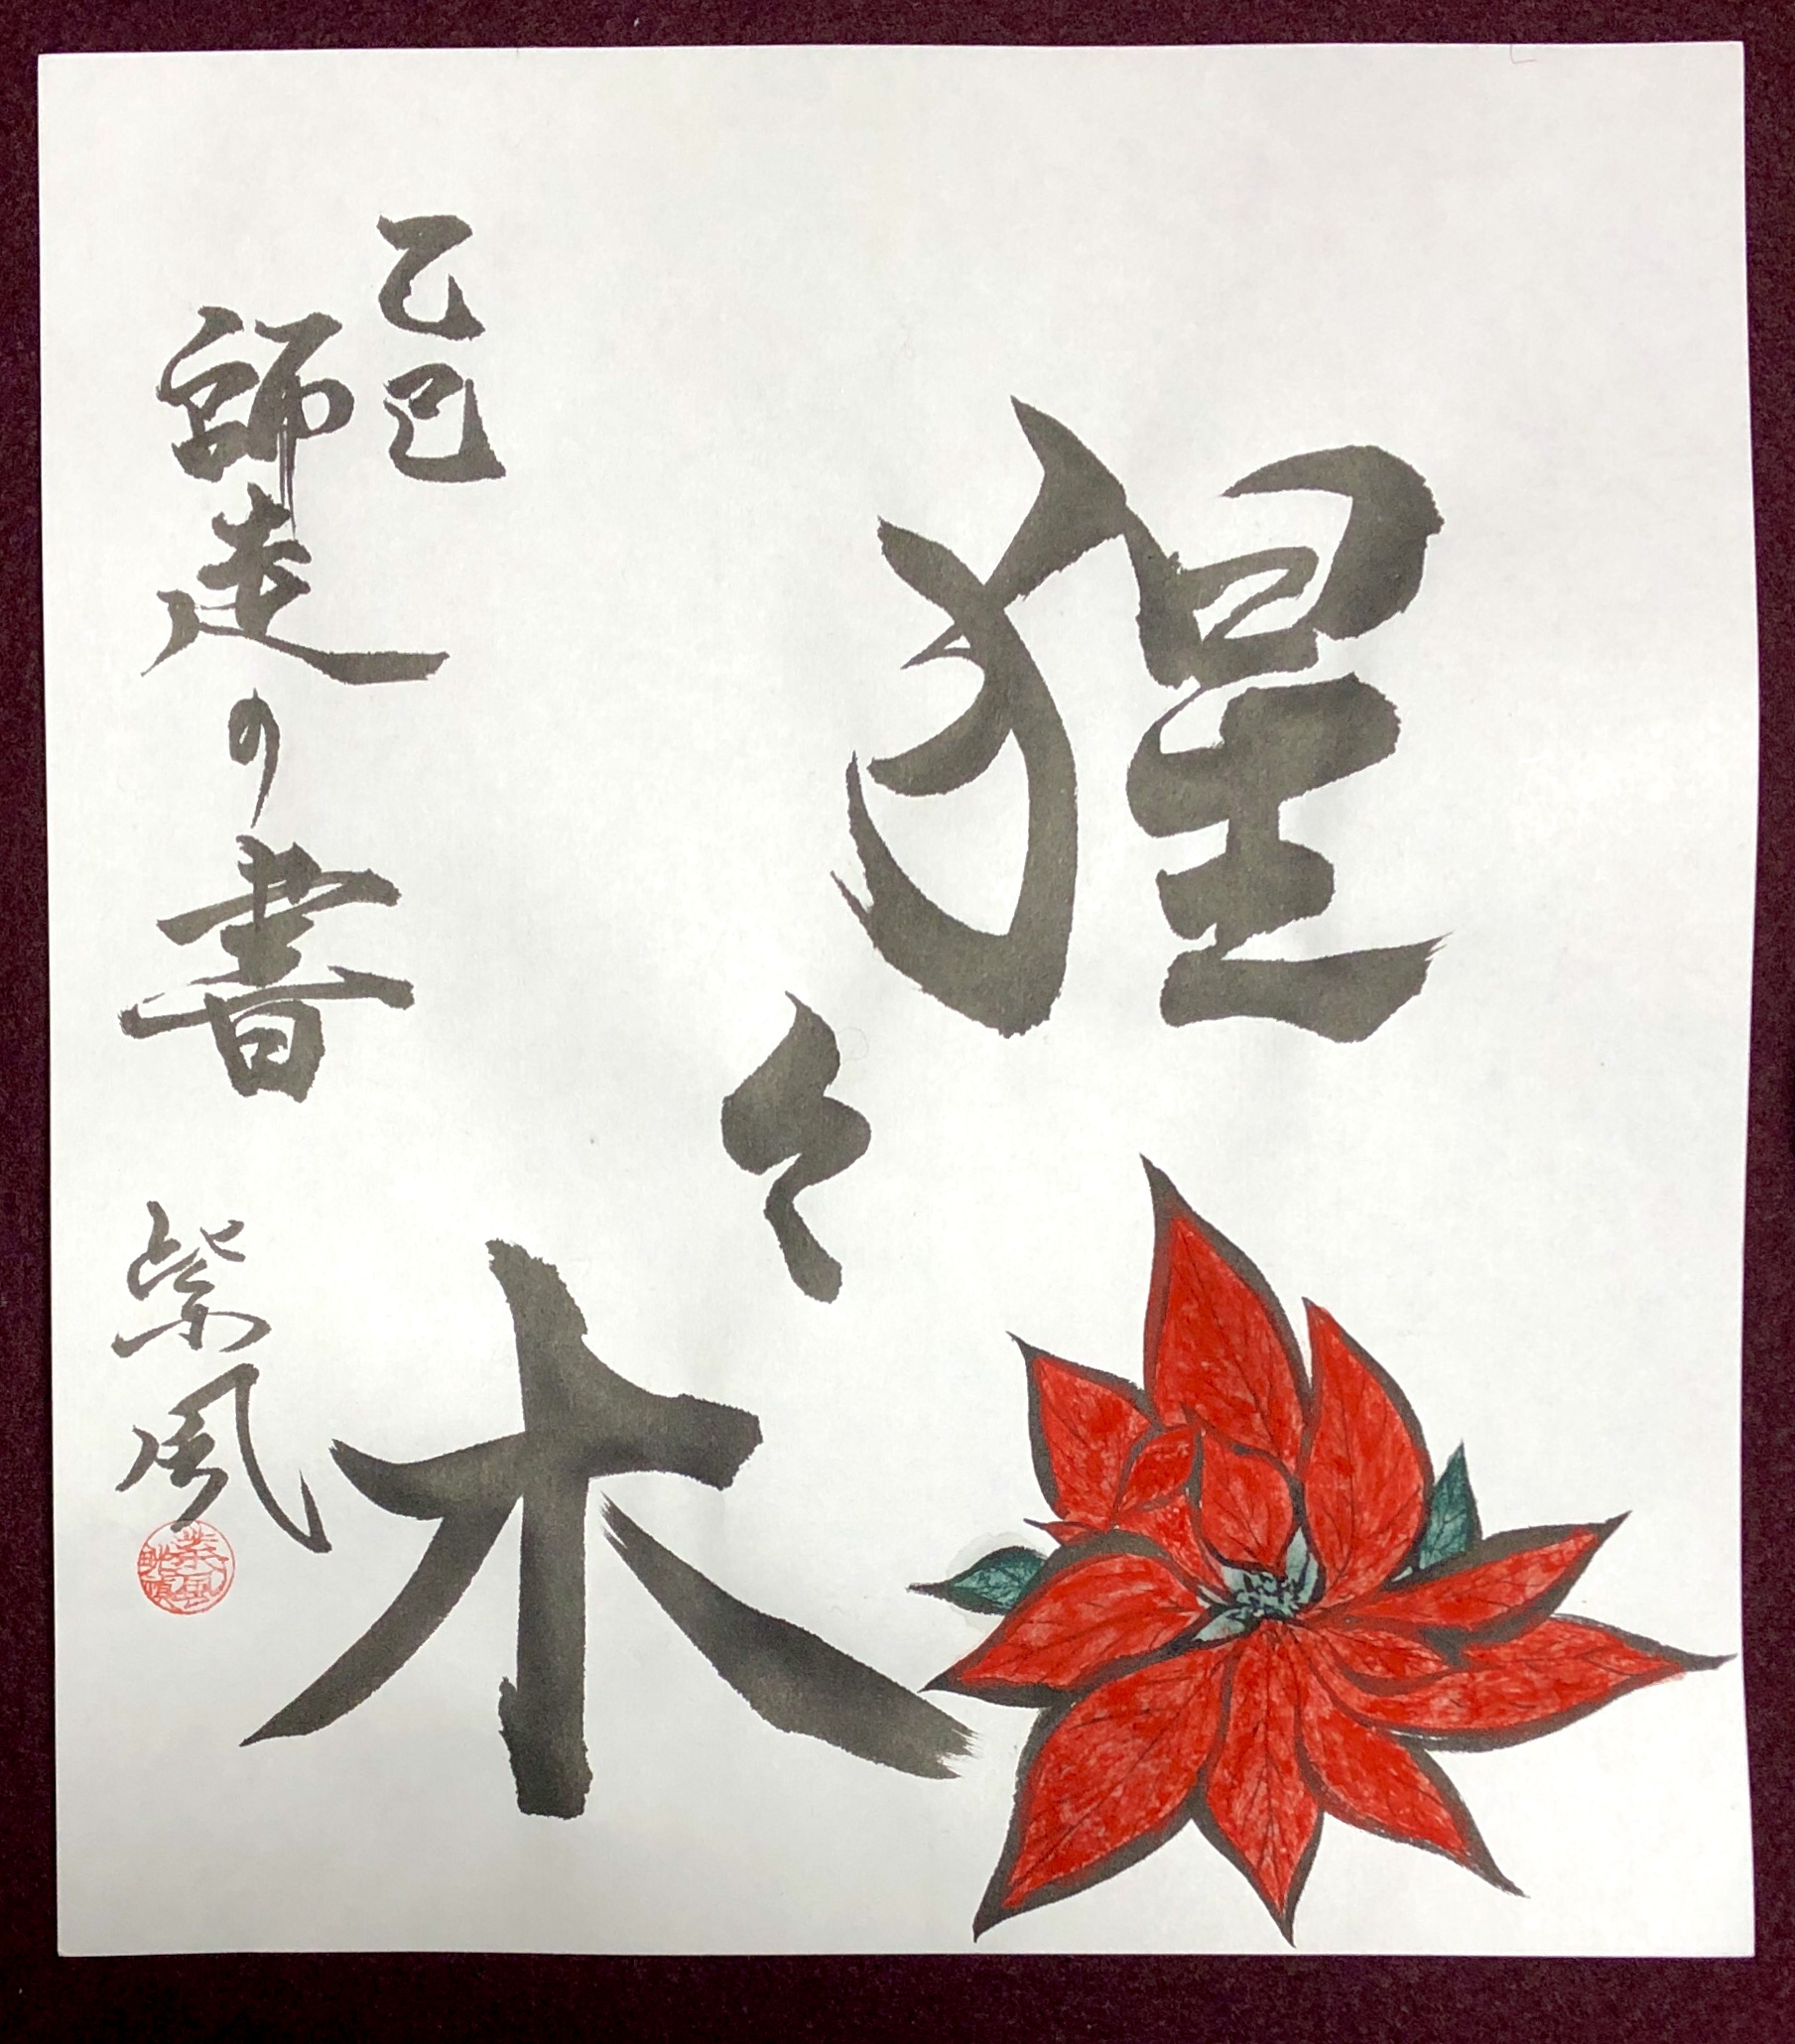 猩々木
乙巳
師走の書
紫風